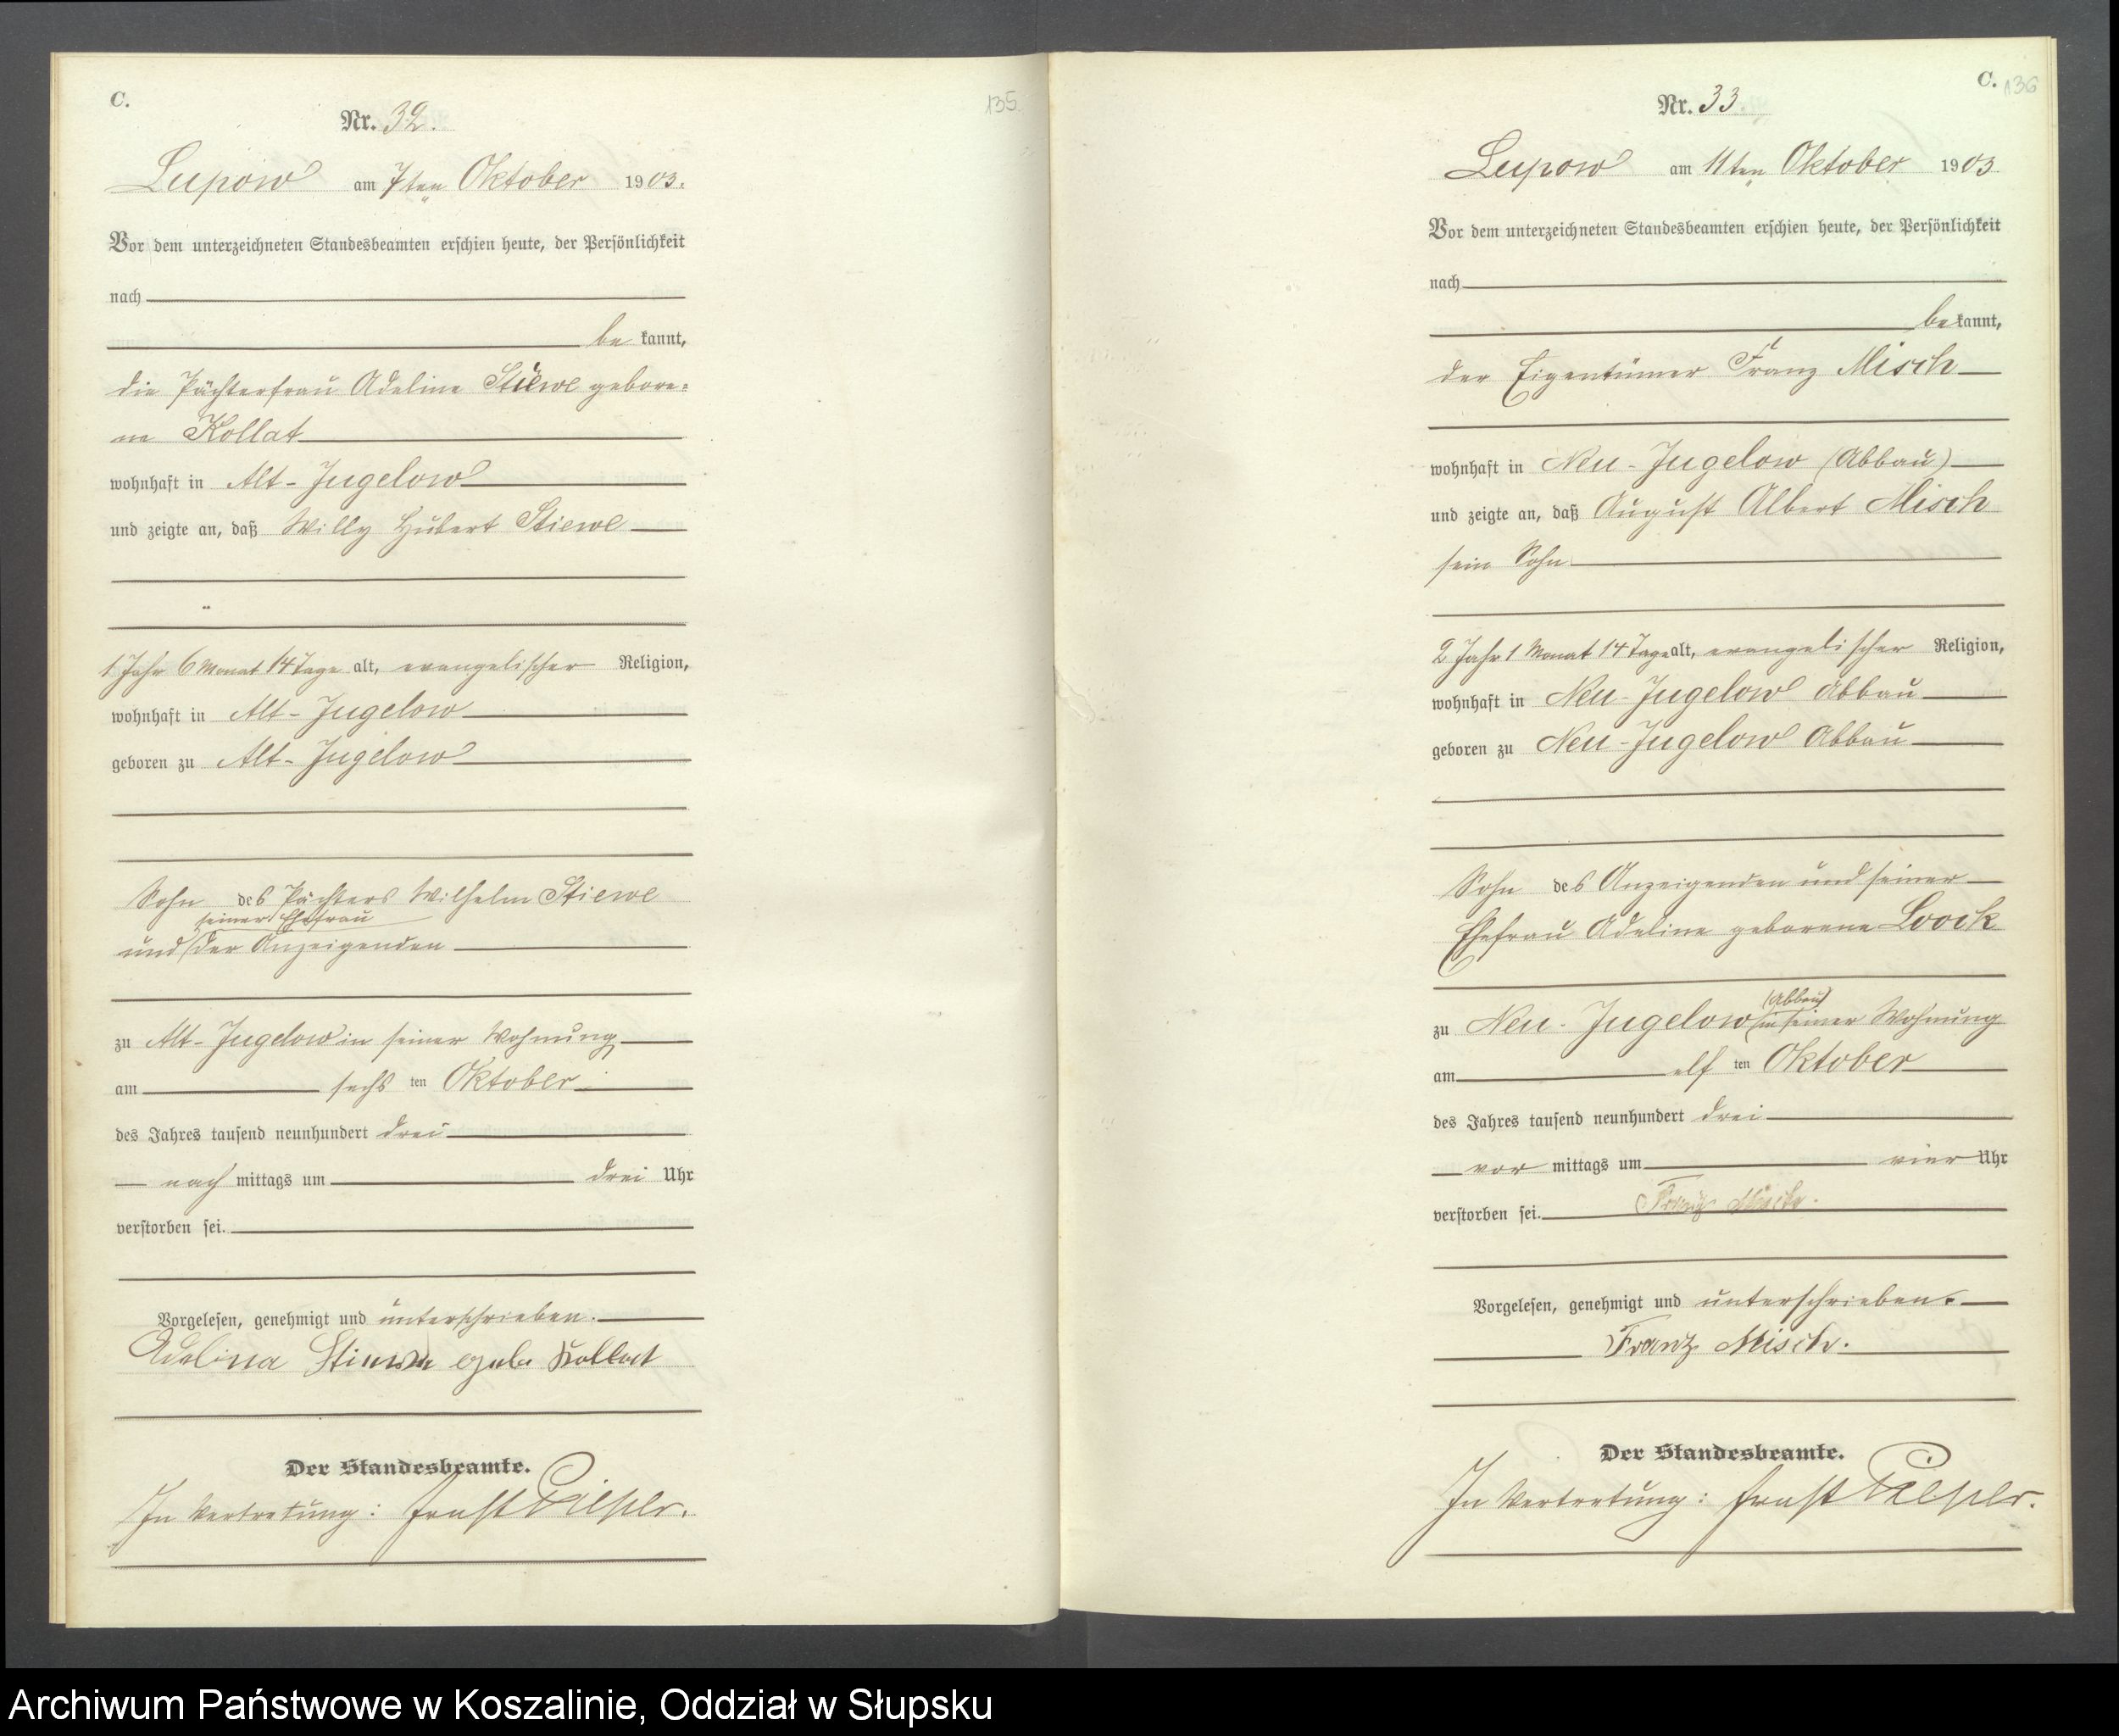 C.
135
Nr. 32.
Lupow am 7ten Oktober 1903.
Vor dem unterzeichneten Standesbeamten erschien heute, der Persönlichkeit
nach
be kannt,
die Pächterfrau Adeline Stiewe gebore=
ne Kollat
wohnhaft in Alt-Jugelow
und zeigte an, daß Willy Hubert Stiewe
1 Jahr 6 Monat 14 Tage alt, evangelischer Religion,
wohnhaft in Alt-Jugelow
geboren zu Alt-Jugelow
Sohn des Pächters Wilhelm Stiewe
seiner Ehefrau
und der Anzeigenden
zu Alt-Jugelow in seiner Wohnung
am sechs ten Oktober
des Jahres tausend neunhundert drei
nach mittags um drei Uhr
verstorben sei.
Vorgelesen, genehmigt und unterschrieben.
Adelina Stiewe geb. Kollat
Der Standesbeamte.
In Vertretung: Ernst Piepler.
C. 136
Nr. 33
Lupow am 11ten Oktober 1903
Vor dem unterzeichneten Standesbeamten erschien heute, der Persönlichkeit
nach
be kannt,
der Eigentümer Franz Misch
wohnhaft in Neu-Jugelow (Abbau)
und zeigte an, daß August Albert Misch
sein Sohn
2 Jahr 1 Monat 14 Tage alt, evangelischer Religion,
wohnhaft in Neu-Jugelow Abbau
geboren zu Neu-Jugelow Abbau
Sohn des Anzeigenden und seiner
Ehefrau Adeline geborene Loock
(Abbau)
zu Neu-Jugelow in seiner Wohnung
am elf ten Oktober
des Jahres tausend neunhundert drei
vor mittags um vier Uhr
verstorben sei. Franz Misch.
Vorgelesen, genehmigt und unterschrieben.
Franz Misch.
Der Standesbeamte.
In Vertretung: Ernst Piepler.
Archiwum Państwowe w Koszalinie, Oddział w Słupsku